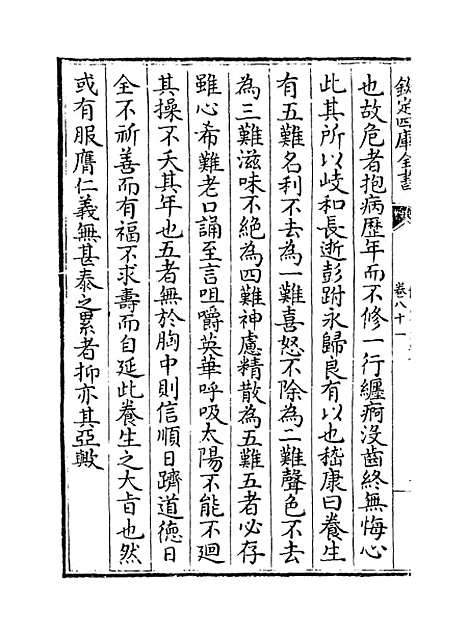 欽定四庫全書
卷八十一
也故危者抱病歷年而不修一行纏痾沒齒終無悔心
此其所以岐和長逝彭跗永歸良有以也嵇康曰養生
有五難名利不去為一難喜怒不除為二難聲色不去
為三難滋味不絕為四難神慮精散為五難五者必存
雖心希難老口誦至言咀嚼英華呼吸太陽不能不迴
其操不夭其年也五者無於胸中則信順日躋道德日
全不祈善而有福不求壽而自延此養生之大旨也然
或有服膺仁義無甚泰之累者抑亦其亞歟